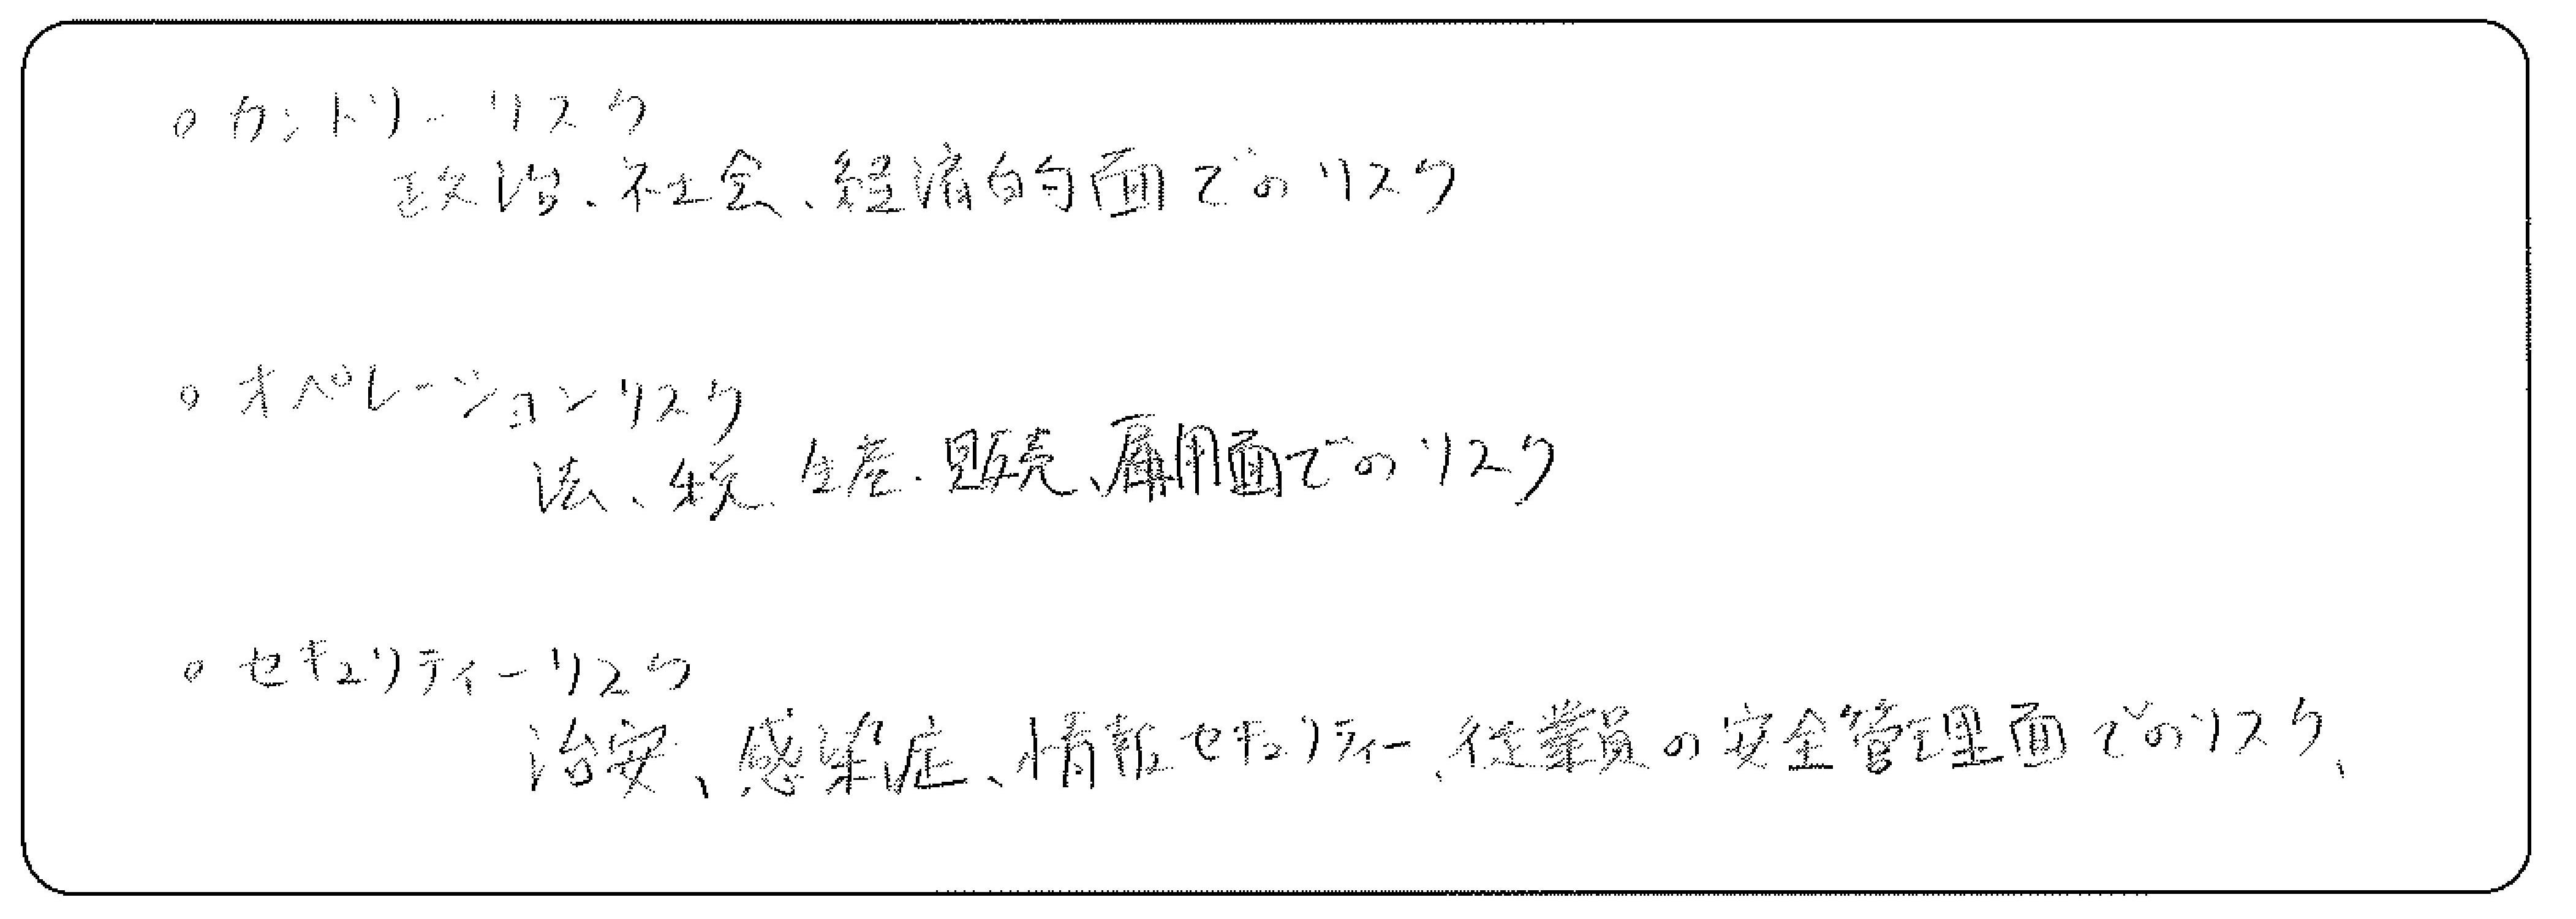 ○ カントリーリスク
政治、社会、経済的面でのリスク
○ オペレーションリスク
法、税、生産、販売、雇用面でのリスク
○ セキュリティーリスク
治安、感染症、情報セキュリティー、従業員の安全管理面でのリスク、